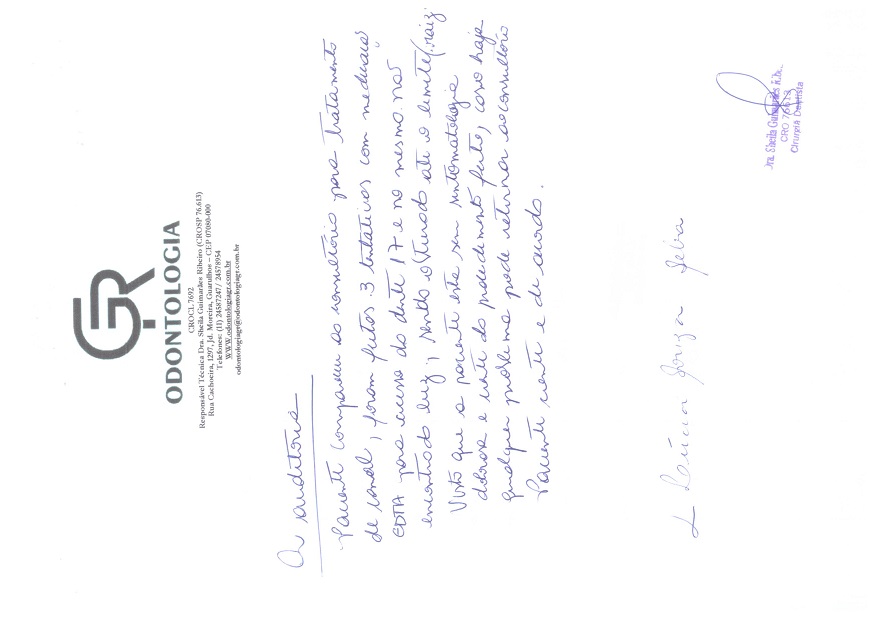 GR
ODONTOLOGIA
CROCL 7692
Responsável Técnica Dra. Sheila Guimarães Ribeiro (CROSP 76.613)
Rua Cachoeira, 1297, Jd. Moreira, Guarulhos – CEP 07080-000
Telefones: (11) 24587247/ 24578954
WWW.odontologiagr.com.br
odontologiagr@odontologiagr.com.br
A auditoria
Paciente compareceu ao consultório para tratamento
de canal, foram feitos 3 tentativas com medicação
EDTA para acesso do dente 17 e no mesmo não
encontrado luz, sendo obturado até o limite (raiz
Visto que a paciente está sem sintomatologia
dolorosa e ciente do procedimento feito, caso haja
qualquer problema pode retornar ao consultório
Paciente ciente e de acordo.
Dra. Sheila Guimarães R.
CRO 76613
Cirurgiã Dentista